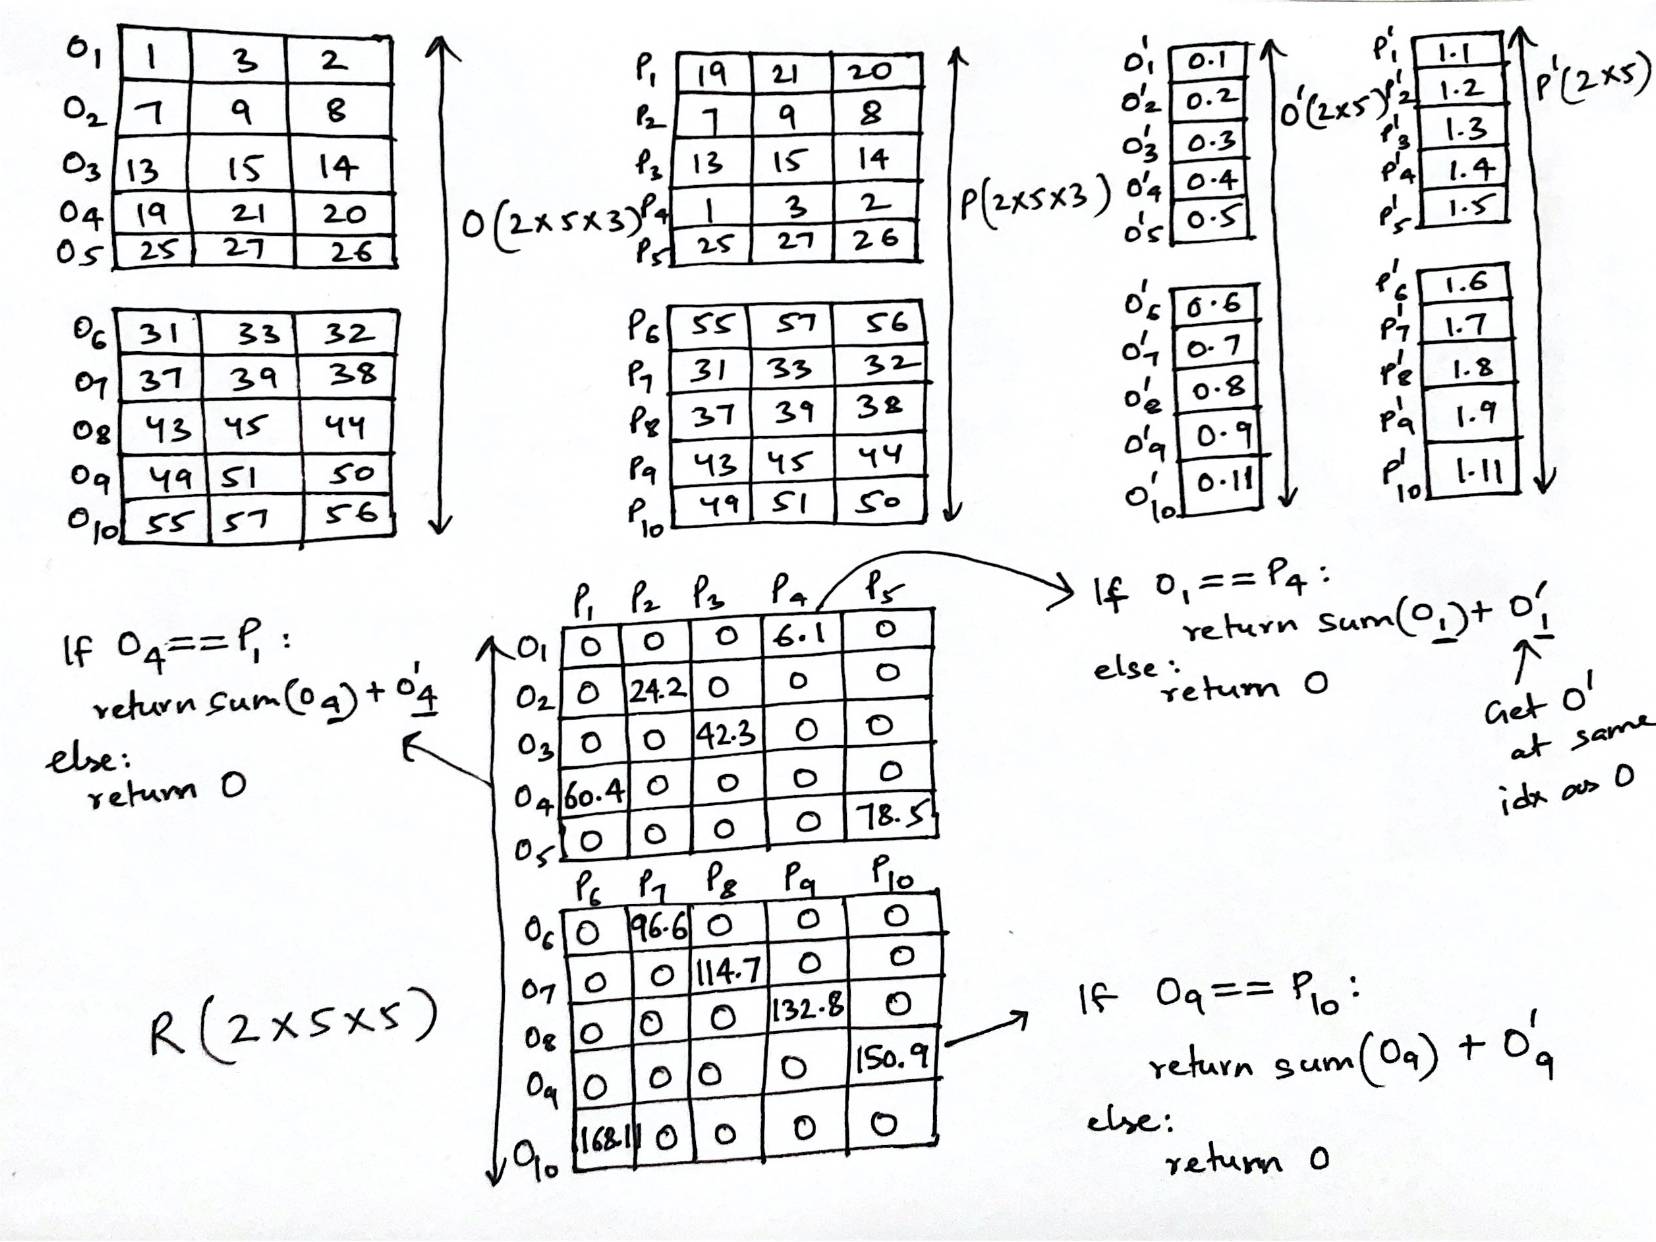 O1 1 3 2
O2 7 9 8
O3 13 15 14
O4 19 21 20
O5 25 27 26
O6 31 33 32
O7 37 39 38
O8 43 45 44
O9 49 51 50
O10 55 57 56
O(2x5x3)
P1 19 21 20
P2 7 9 8
P3 13 15 14
P4 1 3 2
P5 25 27 26
P6 55 57 56
P7 31 33 32
P8 37 39 38
P9 43 45 44
P10 49 51 50
P(2x5x3)
O'1 0.1
O'2 0.2
O'3 0.3
O'4 0.4
O'5 0.5
O'6 0.6
O'7 0.7
O'8 0.8
O'9 0.9
O'10 0.11
O'(2x5)
P'1 1.1
P'2 1.2
P'3 1.3
P'4 1.4
P'5 1.5
P'6 1.6
P'7 1.7
P'8 1.8
P'9 1.9
P'10 1.11
P'(2x5)
If O4==P1:
return sum(O4)+O'4
else:
return 0
P1 P2 P3 P4 P5
O1 0 0 0 6.1 0
O2 0 24.2 0 0 0
O3 0 0 42.3 0 0
O4 60.4 0 0 0 0
O5 0 0 0 0 78.5
P6 P7 P8 P9 P10
O6 0 96.6 0 0 0
O7 0 0 114.7 0 0
O8 0 0 0 132.8 0
O9 0 0 0 0 150.9
O10 168.11 0 0 0 0
R(2x5x5)
If O1==P4:
return sum(O1)+O'1
else:
return 0
Get O'
at same
idx as O
If O9==P10:
return sum(O9)+O'9
else:
return 0